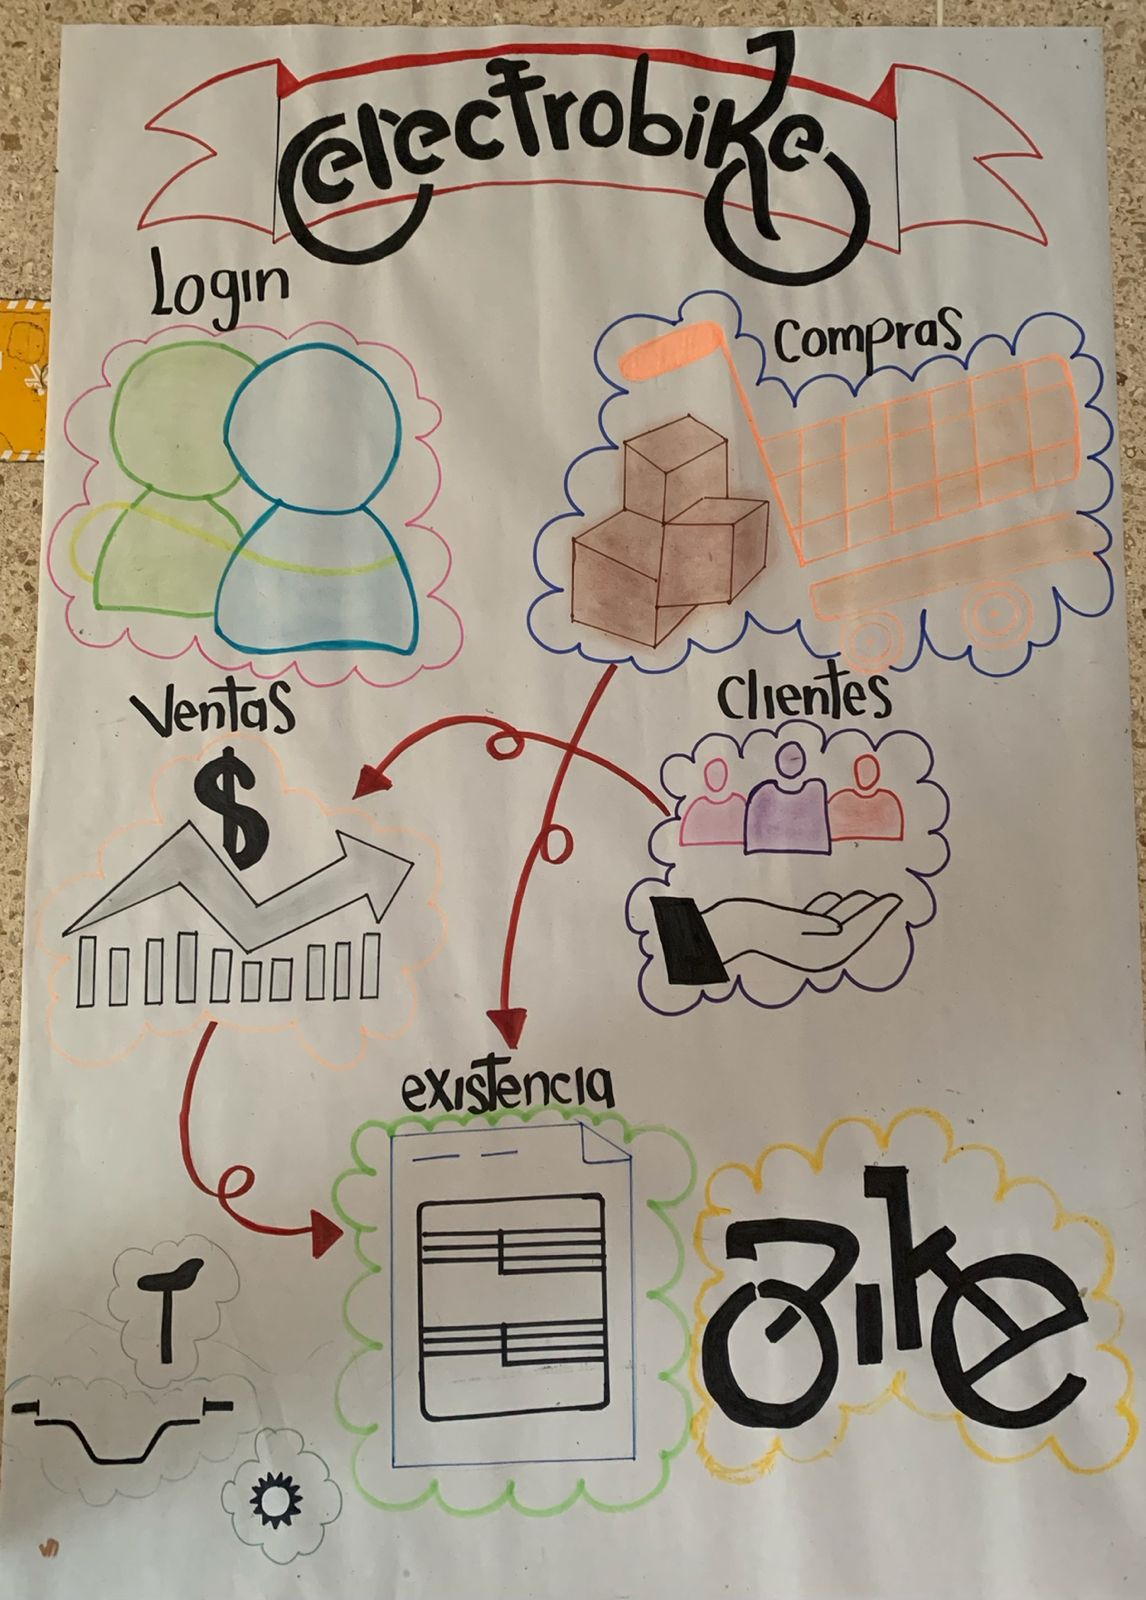 electrobike
Login
Compras
Ventas
Clientes
$
existencia
Bike